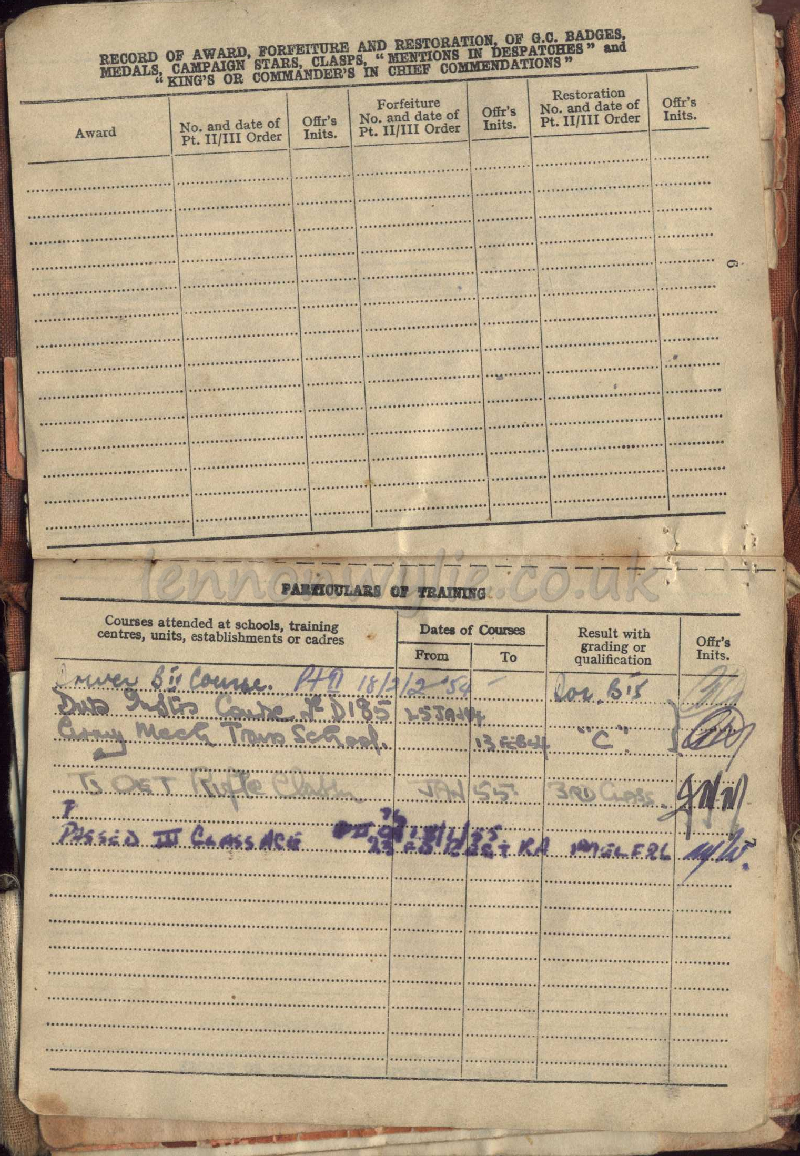 RECORD OF AWARD, FORFEITURE AND RESTORATION, OF G.C. BADGES,
MEDALS, CAMPAIGN STARS, CLASPS, "MENTIONS IN DESPATCHES" and
"KING'S OR COMMANDER'S IN CHIEF COMMENDATIONS"
Award
No. and date of
Pt. II/III Order
Offr's
Inits.
Forfeiture
No. and date of
Pt. II/III Order
Offr's
Inits.
Restoration
No. and date of
Pt. II/III Order
Offr's
Inits.
9
lennoxwylie.co.uk
PARTICULARS OF TRAINING
Courses attended at schools, training
centres, units, establishments or cadres
Dates of Courses
From
To
Result with
grading or
qualification
Offr's
Inits.
Driver BII Course. 18/2/2 54 BII
Course D185 25 JAN
Army Mech Trans School. 13 FEB "C"
Rifle JAN 55 3RD Class
PASSED III CLASS ACE RA